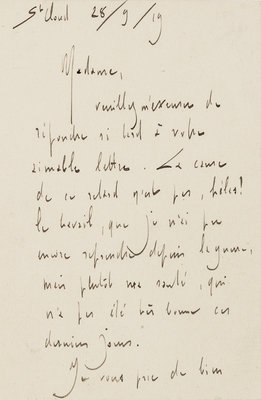 St Cloud 28/9/19
Madame,
veuillez m'excuser de
répondre si tard à votre
aimable lettre. La cause
de ce retard n'est pas, hélas!
le travail, que je n'ai pu
encore reprendre depuis la guerre,
mais plutôt ma santé, qui
n'a pas été très bonne ces
derniers jours.
Je vous prie de bien